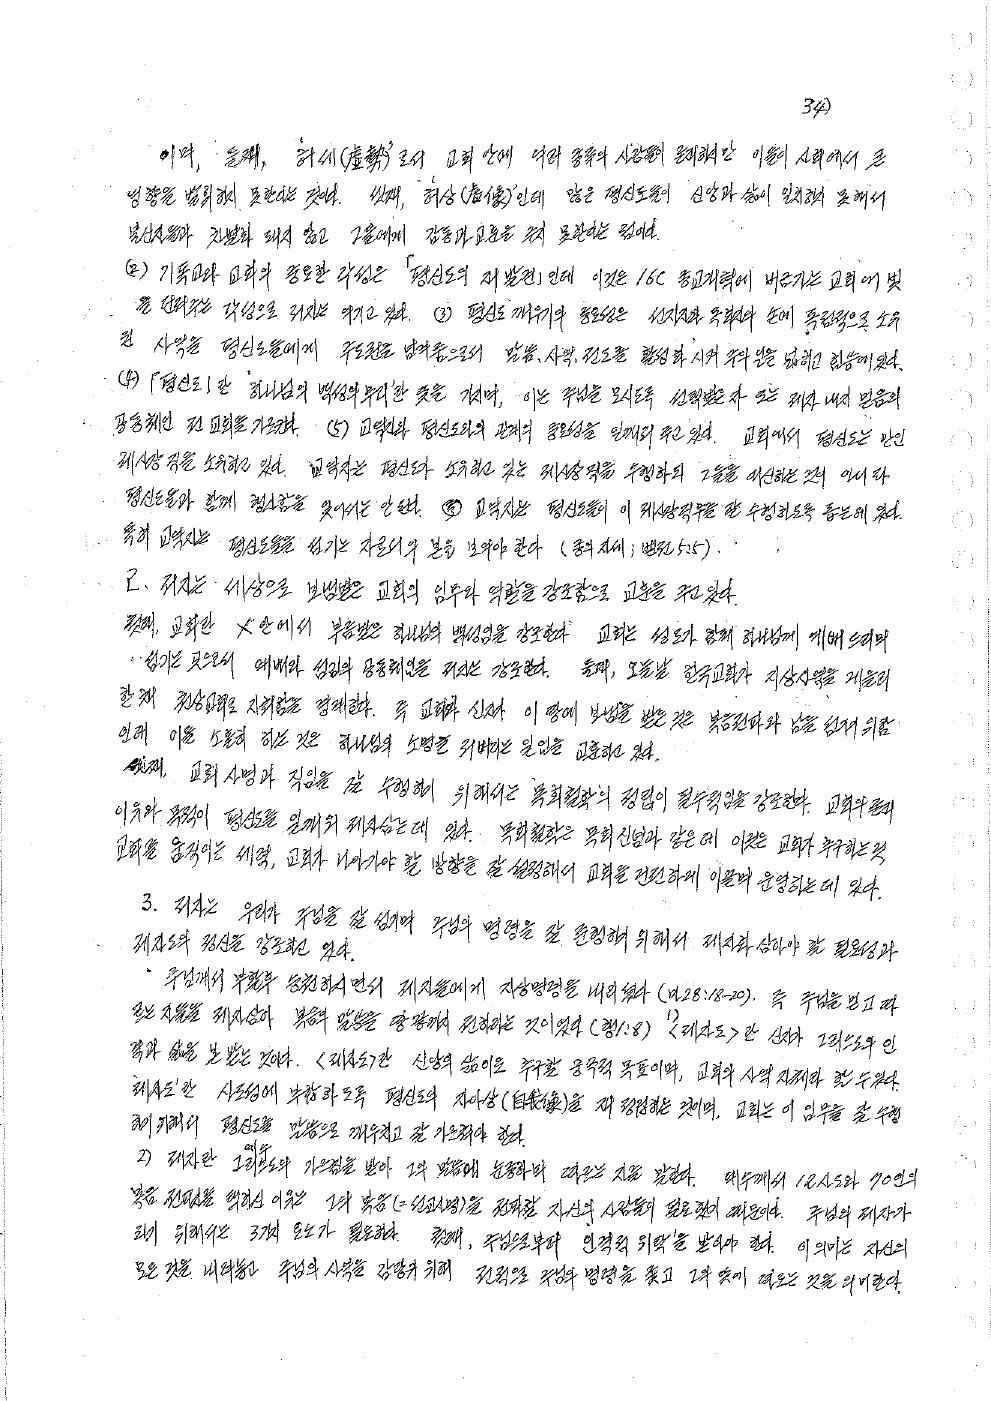 34)
이며, 둘째, '허세(虛勢)'로서 교회 안에 여러 종류의 사람들이 존재하지만 이들이 사회에서 큰
영향을 발휘하지 못한다는 것이다. 셋째, 허상(虛像)'인데 많은 평신도들이 신앙과 삶이 일치하지 못해서
불신자들과 차별화 되지 않고 그들에게 감동과 교훈을 주지 못한다는 점이다.
(2) 기독교와 교회의 중요한 각성은 「평신도의 재발견」인데 이것은 16C 종교개혁에 버금가는 교회에 빛
을 던져주는 각성으로 저자는 여기고 있다. (3) 평신도 깨우기의 중요성은 성직자와 목회자의 손에 독점적으로 소유
된 사역을 평신도들에게 주도권을 넘겨줌으로서 말씀, 사역, 전도를 활성화 시켜 주의 일을 넓히고 힘씀에 있다.
(4) 「평신도」란 '하나님의 백성의 무리'란 뜻을 가지며, 이는 주님을 모시도록 선택받은 자 또는 제자 내지 믿음의
공동체인 전 교회를 가르킨다. (5) 교역자와 평신도와의 관계의 중요성을 일깨워 주고 있다. 교회에서 평신도는 만인
제사장 직을 소유하고 있다. 교역자는 평신도가 소유하고 있는 제사장직을 수행하되 그들을 대신하는 것이 아니라
평신도들과 함께 형상함을 잊어서는 안 된다. 교역자는 평신도들이 이 제사장직무를 잘 수행하도록 돕는데 있다.
특히 교역자는 평신도들을 섬기는 자로서의 본을 보여야 한다 (종의 자세; 벧전 5:5).
2. 저자는 세상으로 보냄받은 교회의 임무와 역할을 강조함으로 교훈을 주고 있다.
첫째, 교회란 X 안에서 부름받은 하나님의 백성임을 강조한다 교회는 성도가 함께 하나님께 예배 드리며
섬기는 곳으로서 예배와 섬김의 공동체임을 저자는 강조한다. 둘째, 오늘날 한국교회가 지상사역을 게을리
한 채 천상교회로 자처함을 경계한다. 즉 교회와 신자가 이 땅에 보냄을 받은 것은 복음전파와 남을 섬기기 위함
인데 이를 소홀히 하는 것은 하나님의 소명을 저버리는 일임을 교훈하고 있다.
셋째, 교회 사명과 직임을 잘 수행하기 위해서는 '목회철학'의 정립이 필수적임을 강조한다. 교회의 존재
이유와 목적이 평신도를 일깨워 제자삼는데 있다. 목회철학은 목회신념과 같은데 이것은 교회가 추구하는 것
교회를 움직이는 세력, 교회가 나아가야 할 방향을 잘 설정해서 교회를 건전하게 이끌며 운영하는데 있다.
3. 저자는 우리가 주님을 잘 섬기며 주님의 명령을 잘 준행하기 위해서 제자화 삼아야 할 필요성과
제자도의 정신을 강조하고 있다.
주님께서 부활후 승천하시면서 제자들에게 지상명령을 내리셨다 (마28:18-20). 즉 주님을 믿고 따
르는 자들을 제자삼아 복음의 말씀을 땅끝까지 전하라는 것이었다 (행1:8) 1) <제자도>란 신자가 그리스도의 인
격과 삶을 본 받는 것이다. <제자도>란 신앙의 삶이로 추구할 궁극적 목표이며, 교회의 사역 자체라 할 수 있다.
'제자도'란 사도성에 부합하도록 평신도의 자아상(自我像)을 재 정립하는 것이며, 교회는 이 임무를 잘 수행
하기 위해서 평신도를 말씀으로 깨우치고 잘 가르쳐야 한다.
2) 제자란 예수 그리스도의 가르침을 받아 그의 말씀에 순종하며 따르는 자를 말한다. 예수께서 12사도와 70인의
복음 전파자를 택하신 이유는 그의 복음(=선교사명)을 전파할 자신의 사람들이 필요했기 때문이다. 주님의 제자가
되기 위해서는 3가지 요소가 필요하다. 첫째, 주님으로부터 '인격적 위탁'을 받아야 한다. 이 의미는 자신의
모든 것을 내려놓고 주님의 사역을 감당키 위해 전적으로 주님의 명령을 좇고 그의 뜻에 따르는 것을 의미한다.